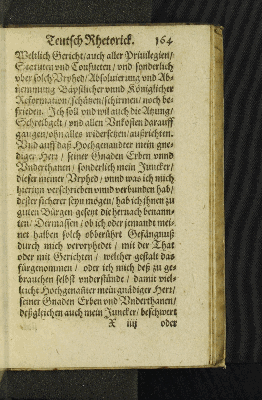 Teutsch Rhetorick. 164
Weltlich Gericht/ auch aller Priuilegien/
Statuten vnd Consueten/ vnd sonderlich
vber solch Vrphed/ Absoluierung vnd Ab-
nemmung Bäpstlicher vnnd Königlicher
Reformation/ schützen/ schirmen/ noch be-
frieden. Ich soll vnd wil auch die Atzung/
Schreibgelt/ vnd allen Vnkosten darauff
gangen/ ohn alles widersetzen/ außrichten.
Vnd auff daß Hochgenandter mein gne-
diger Herr/ seiner Gnaden Erben vnnd
Vnderthanen/ sonderlich mein Juncker/
dieser meiner Vrphed/ vnnd was ich mich
hierinn verschrieben vnnd verbunden hab/
dester sicherer seyn mögen/ hab ich ihnen zu
guten Bürgen gesetzt die hernach benann-
ten/ Dermassen/ ob ich oder jemandt mei-
net halben solch obberührt Gefängnuß
durch mich vervrphedet/ mit der That
oder mit Gerichten/ welcher gestalt das
fürgenommen/ oder ich mich deß zu ge-
brauchen selbst vnderstünde/ damit viel-
leicht Hochgenañter mein gnädiger Herr/
seiner Gnaden Erben vnd Vnderthanen/
deßgleichen auch mein Juncker/ beschwert
X iiij oder